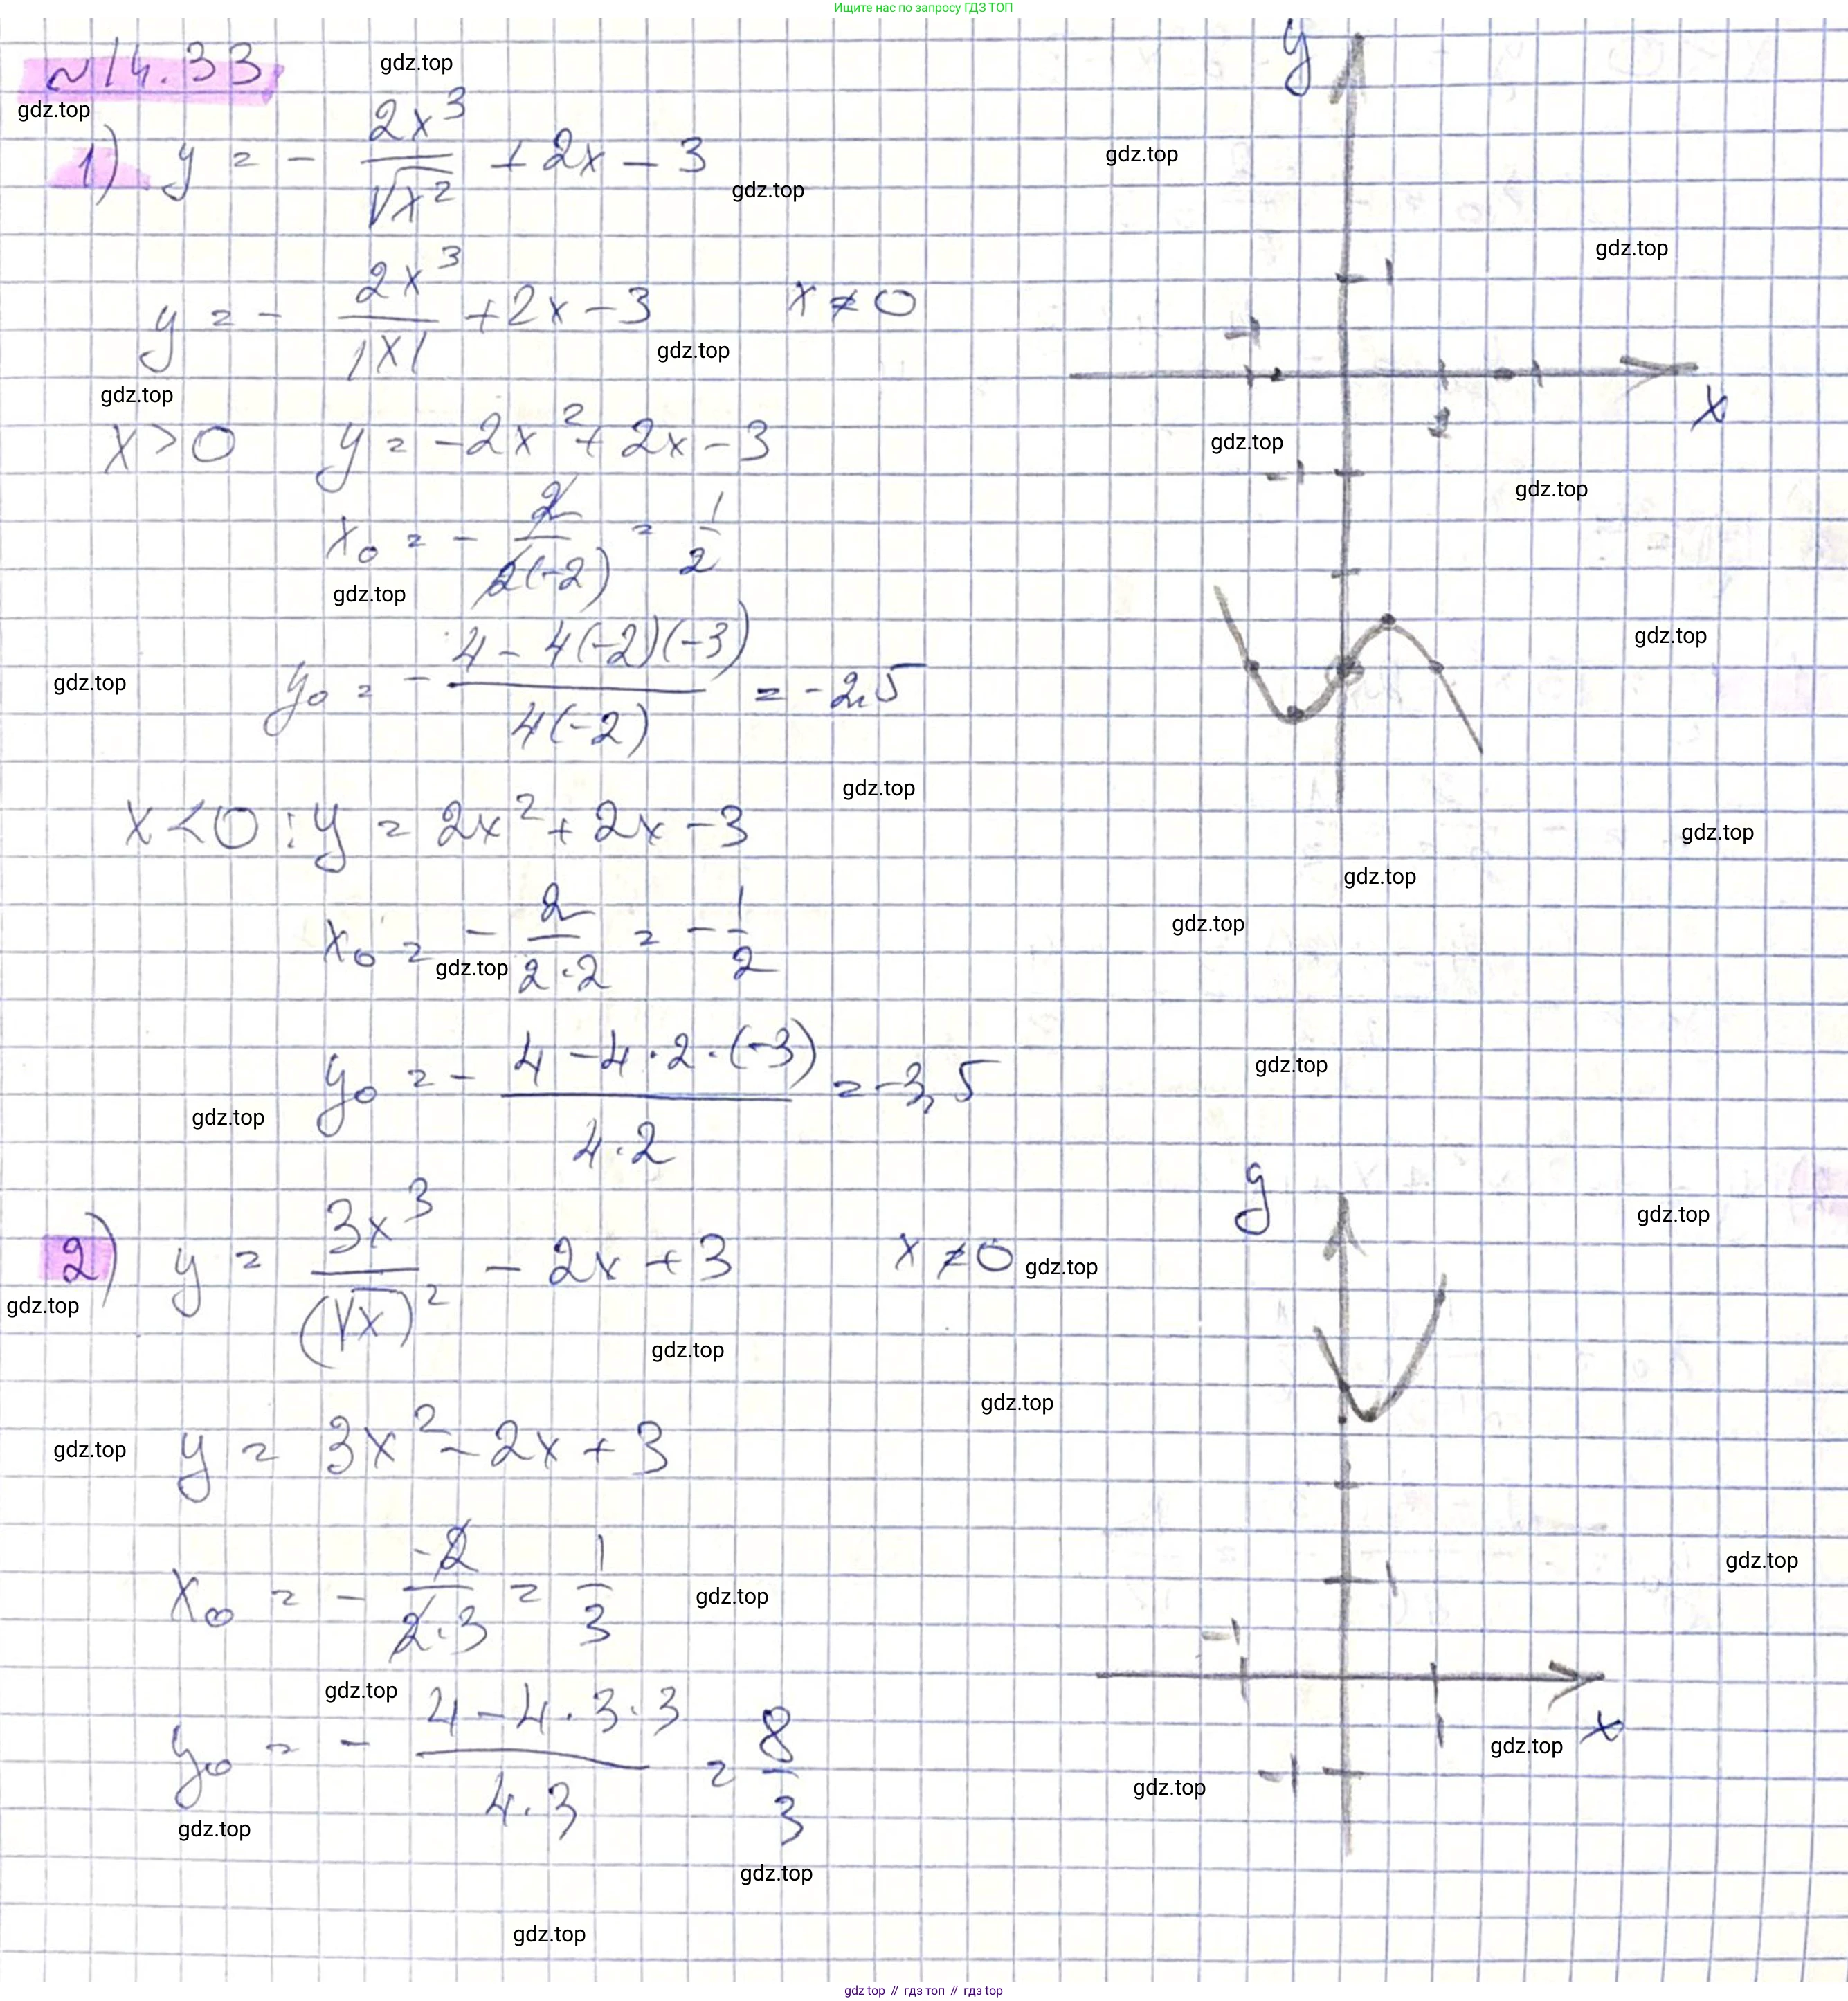 Ищите нас по запросу ГДЗ ТОП
№14.33
gdz.top
gdz.top
1) y = - 2x³/√x² + 2x - 3
gdz.top
gdz.top
y = - 2x³/|x| + 2x - 3   x ≠ 0
gdz.top
gdz.top
gdz.top
x > 0   y = -2x² + 2x - 3
x₀ = - 2/2(-2) = 1/2
gdz.top
y₀ = - 4 - 4(-2)(-3)/4(-2) = -2,5
gdz.top
gdz.top
x < 0 : y = 2x² + 2x - 3
x₀ = - 2/2·2 = - 1/2
gdz.top
y₀ = - 4 - 4·2·(-3)/4·2 = -3,5
gdz.top
y
1
-1
x
1
-1
gdz.top
gdz.top
gdz.top
gdz.top
gdz.top
gdz.top
gdz.top
gdz.top
2) y = 3x³/(√x)² - 2x + 3   x ≠ 0
gdz.top
gdz.top
gdz.top
gdz.top
y = 3x² - 2x + 3
gdz.top
x₀ = - -2/2·3 = 1/3
gdz.top
gdz.top
y₀ = - 4 - 4·3·3/4·3 = 8/3
gdz.top
gdz.top
gdz.top
y
gdz.top
gdz.top
1
-1
1
x
-1
gdz.top
gdz.top
gdz.top // гдз топ // гдз.top